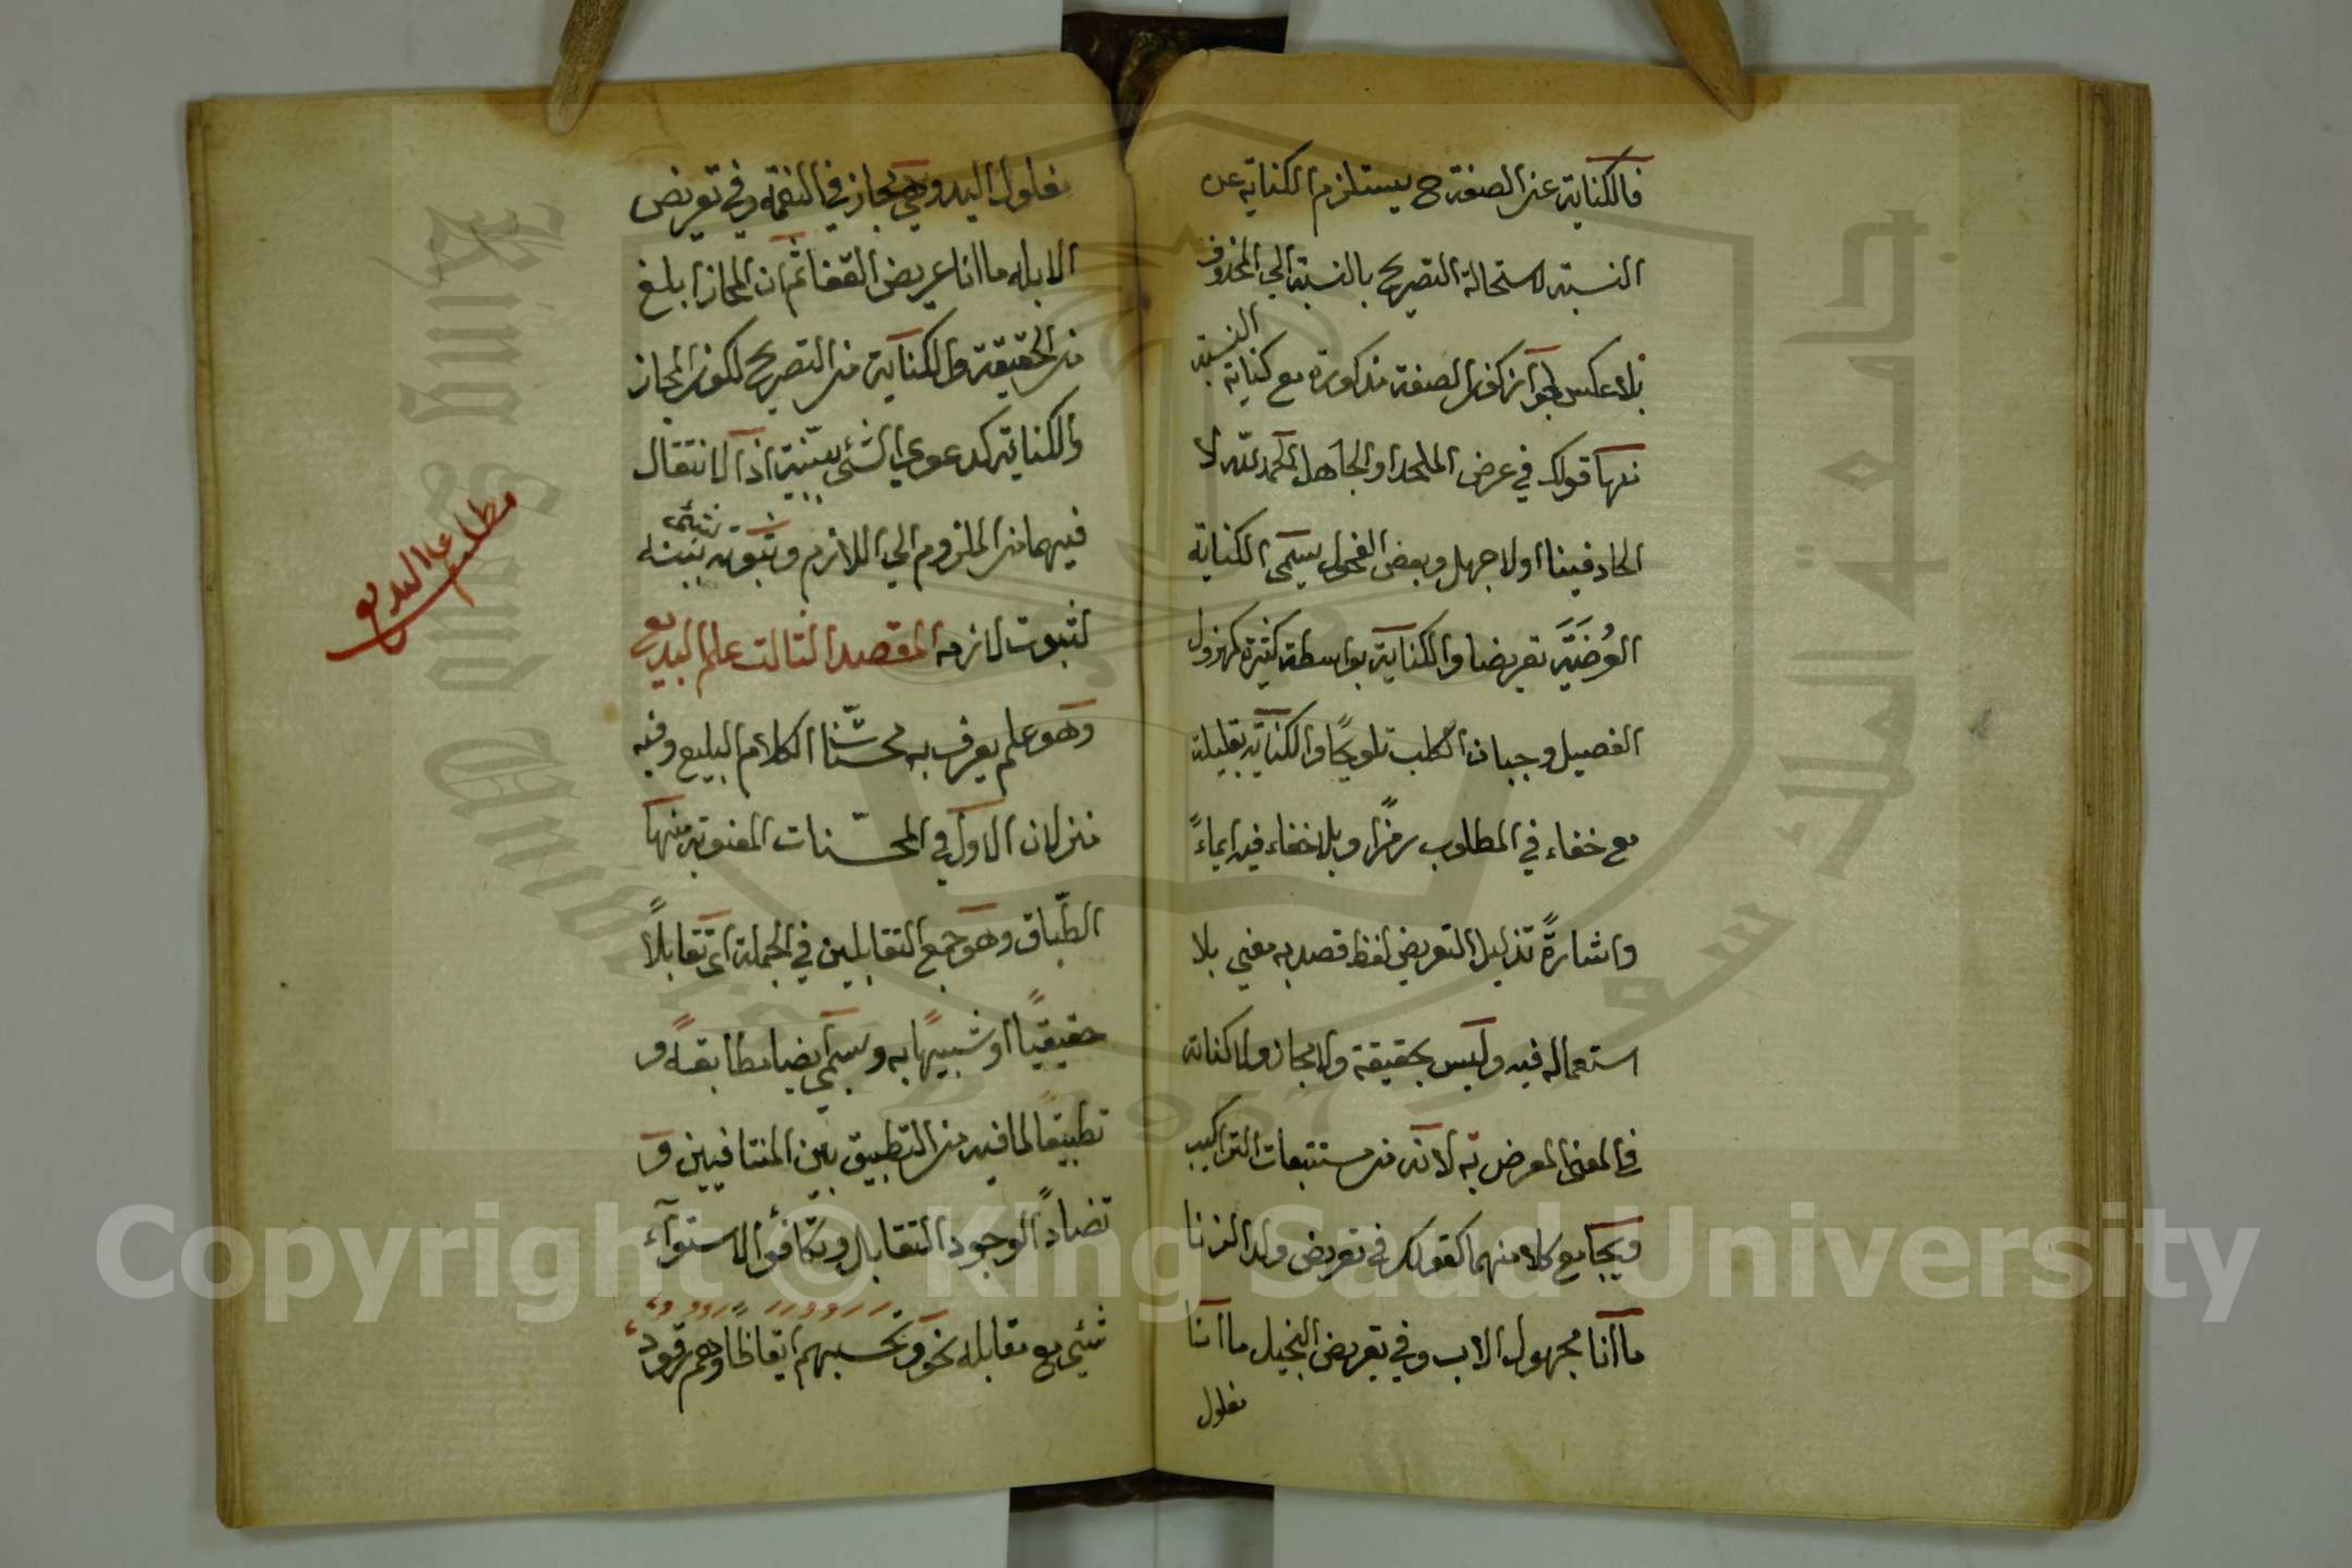 فالكناية عن الصفة ح يستلزم الكناية عن
النسبة لاستحالة التصريح بالنسبة الى المحذوف
بلا عكس لجواز كون الصفة مذكورة مع كناية النسبة
نحو قولك في عرض الملحد او الجاهل الحمد لله لا
الحاد فينا او لا جهل وبعض الفحول يسمى الكناية
العُرَضيَّة تعريضا والكناية بواسطة كثيرة كمهزول
الفصيل وجبان الكلب تلويحًا والكناية بقليلة
مع خفاء في المطلوب رمزًا وبلا خفاء فيه ايماءً
واشارةً تذليل التعريض لفظ قصد به معنى بلا
استعماله فيه وليس بحقيقة ولا مجاز ولا كناية
في المعنى المعرض به لانه من مستتبعات التراكيب
ويجامع كلا منهما كقولك في تعريض ولد الزنا
ما انا مجهول الاب وفي تعريض البخيل ما انا
مغلول
مغلول اليد وهي مجاز في النعمة وفي تعريض
الابله ما انا عريض القفا ثم ان المجاز ابلغ
من الحقيقة والكناية من التصريح لكون المجاز
والكناية كدعوى الشئ ببينة اذ الانتقال
فيهما من الملزوم الى اللازم وثبوت شئ بينة
لثبوت لازمه المقصد الثالث علم البديع
وهو علم يعرف به محسنات الكلام البليغ وفيه
منزلان الاول في المحسّنات المعنوية منها
الطّباق وهو جمع المتقابلين في الجملة اى تقابلاً
حقيقيًا او شبيهًا به وسمى ايضا مطابقةً و
تطبيقًا لما فيه من التطبيق بين المتنافيين و
تضادًا لوجود التقابل وتكافؤا لاستوآء
شئ مع مقابله نحو وتحسبهم ايقاظًا وهم رقود
مطلب علم البديع
Copyright © King Saud University
King Saud University
جامعة الملك سعود
1957